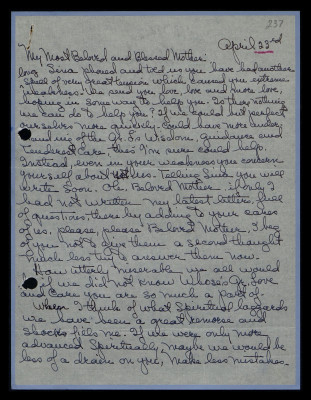 237
April 23rd
My Most Beloved and Blessed Mother:
love, Sina phoned and told us you have had another
spell of very great tension which caused you extreme
weakness. We send you love, love and more love,
hoping in some way to help you. Is there nothing
we can do to help you? If we could but perfect
ourselves more quickly. Could have more under-
standing of the Gr. Sr.'s Wisdom, Guidance and
Tenderest Care, then I'm sure could help.
Instead, even in your weakness you concern
yourself about us. Telling Sina you will
write soon. Oh, Beloved Mother if only I
had not written my latest letter, full
of questions, thereby adding to your cares
of us. Please, please Beloved Mother, I beg
of you not to give them a second thought
much less try to answer them now.
How utterly miserable we all would
if we did not know Whose Gr. Love
and Care you are so much a part of.
When I think of what Spiritual laggards
we have been a great remorse and
shock fills me. If we were only more
advanced Spiritually, maybe we would be
less of a drain on you, make less mistakes.